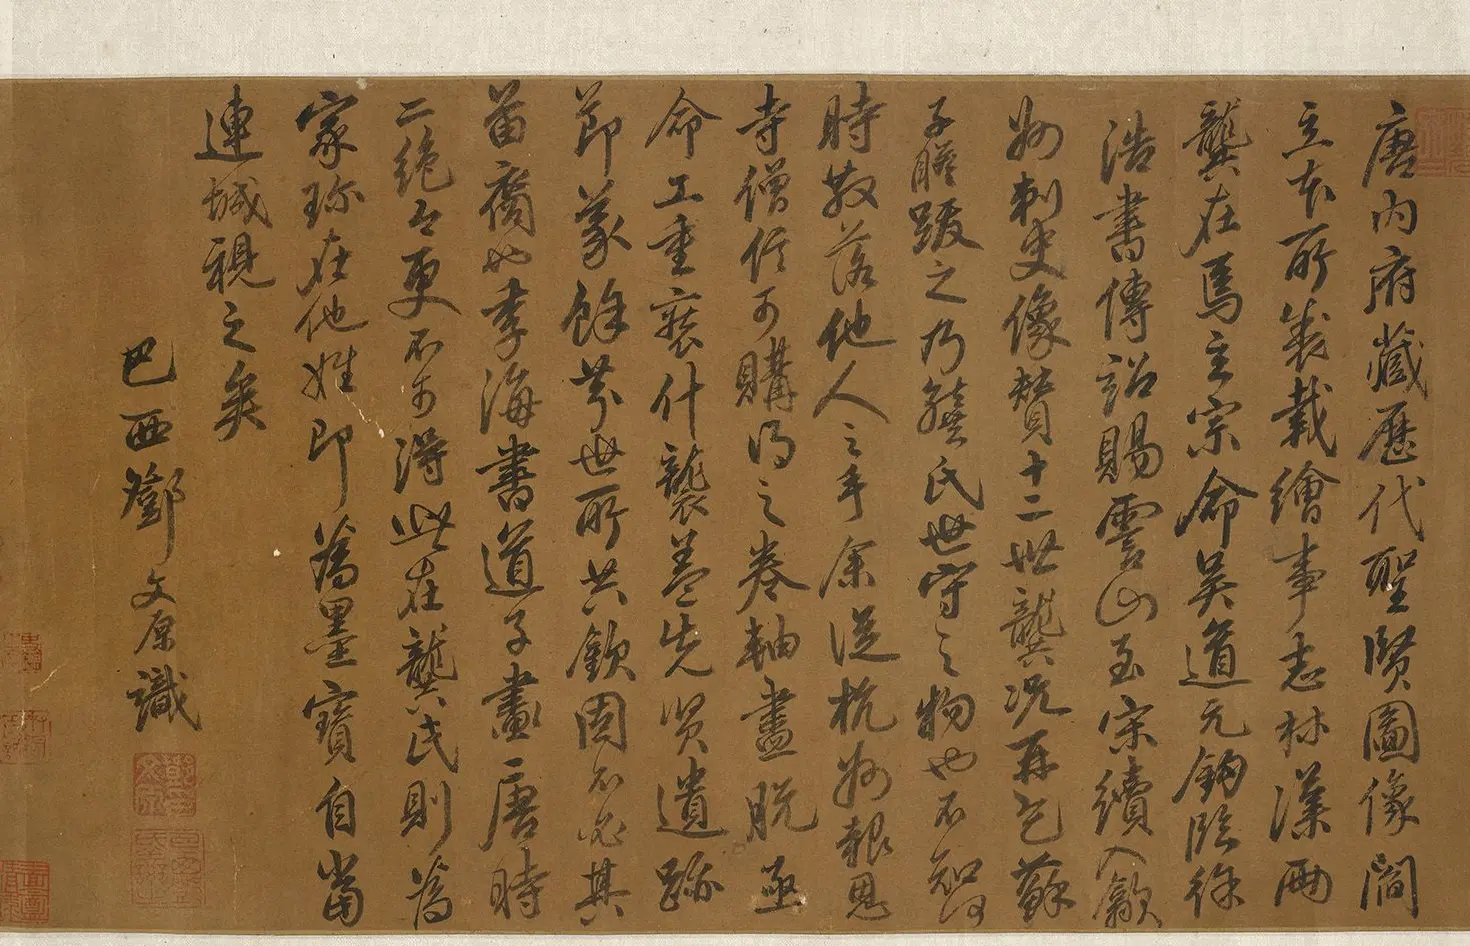 唐內府藏歷代聖賢圖像閻
立本所裁載繪事志林漢兩
龔在焉玄宗命吳道元鉤臨徐
浩書傳詔賜雲山至宋續入歙
州刺史像贊十二世龔況再乞蘇
子瞻跋之乃龔氏世守之物也不知何
時散落他人之手余從杭州報恩
寺僧住可購得之卷軸盡脫亟
命工重裝什襲蓋先賢遺跡
節義餘芬世所共欽固不必其
苗裔也李海書道子畫唐時
二絕今更不可得此在龔氏則為
家珍在他姓即為墨寶自當
連城視之矣
巴西鄧文原識